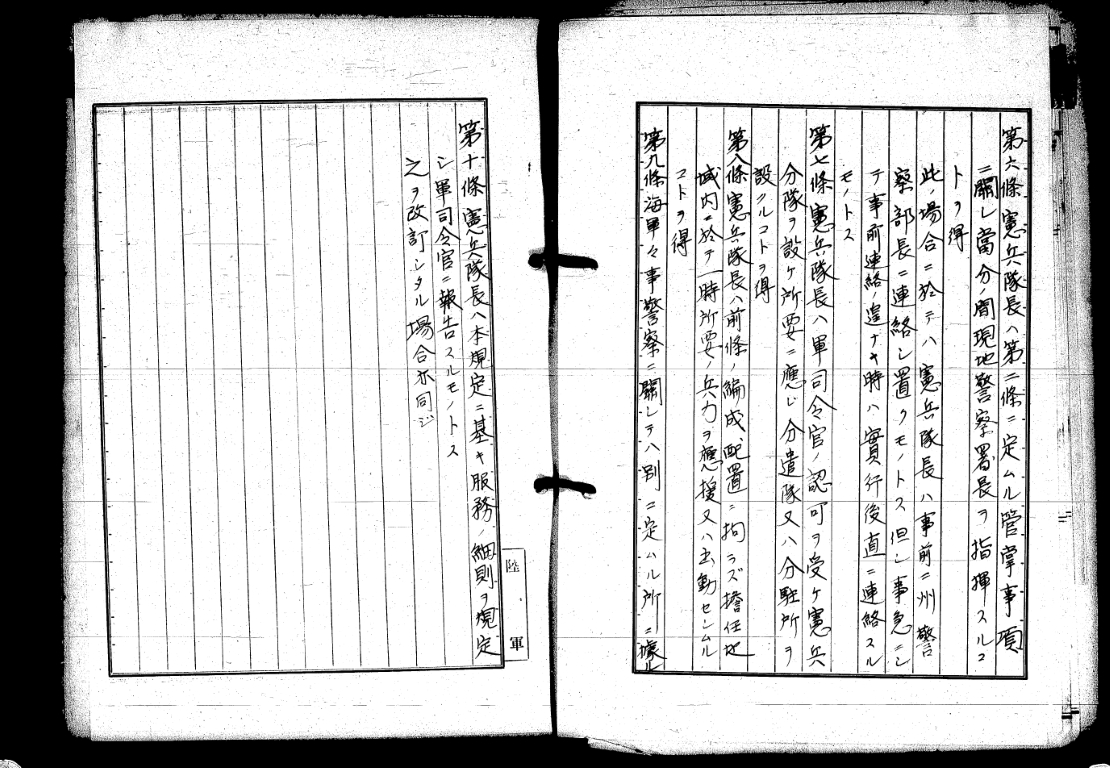 第六條憲兵隊長ハ第二條ニ定ムル管掌事項
ニ關シ當分ノ間現地警察署長ヲ指揮スルコ
トヲ得
此ノ場合ニ於テハ憲兵隊長ハ事前ニ州警
察部長ニ連絡シ置クモノトス但シ事急ニシ
テ事前連絡ノ遑ナキ時ハ實行後直ニ連絡スル
モノトス
第七條憲兵隊長ハ軍司令官ノ認可ヲ受ケ憲兵
分隊ヲ設ケ所要ニ應ジ分遣隊又ハ分駐所ヲ
設クルコトヲ得
第八條憲兵隊長ハ前條ノ編成配置ニ拘ラズ擔任地
域内ニ於テ一時所要ノ兵力ヲ應援又ハ出動セシムル
コトヲ得
第九條海軍々事警察ニ關シテハ別ニ定ムル所ニ據ル
第十條憲兵隊長ハ本規定ニ基キ服務ノ細則ヲ規定
シ軍司令官ニ報告スルモノトス
之ヲ改訂シタル場合亦同ジ
陸軍